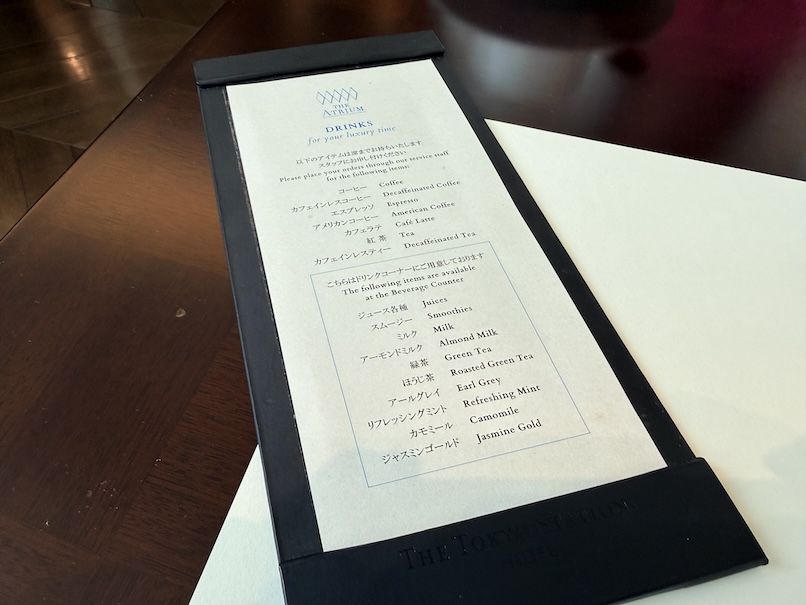 THE
ATRIUM
DRINKS
for your luxury time
以下のアイテムは席までお持ちいたします
スタッフにお申し付けください
Please place your orders through our service staff
for the following items:
コーヒー Coffee
カフェインレスコーヒー Decaffeinated Coffee
エスプレッソ Espresso
アメリカンコーヒー American Coffee
カフェラテ Café Latte
紅 茶 Tea
カフェインレスティー Decaffeinated Tea
こちらはドリンクコーナーにご用意しております
The following items are available
at the Beverage Counter
ジュース各種 Juices
スムージー Smoothies
ミルク Milk
アーモンドミルク Almond Milk
緑茶 Green Tea
ほうじ茶 Roasted Green Tea
アールグレイ Earl Grey
リフレッシングミント Refreshing Mint
カモミール Camomile
ジャスミンゴールド Jasmine Gold
THE TOKYO STATION
HOTEL